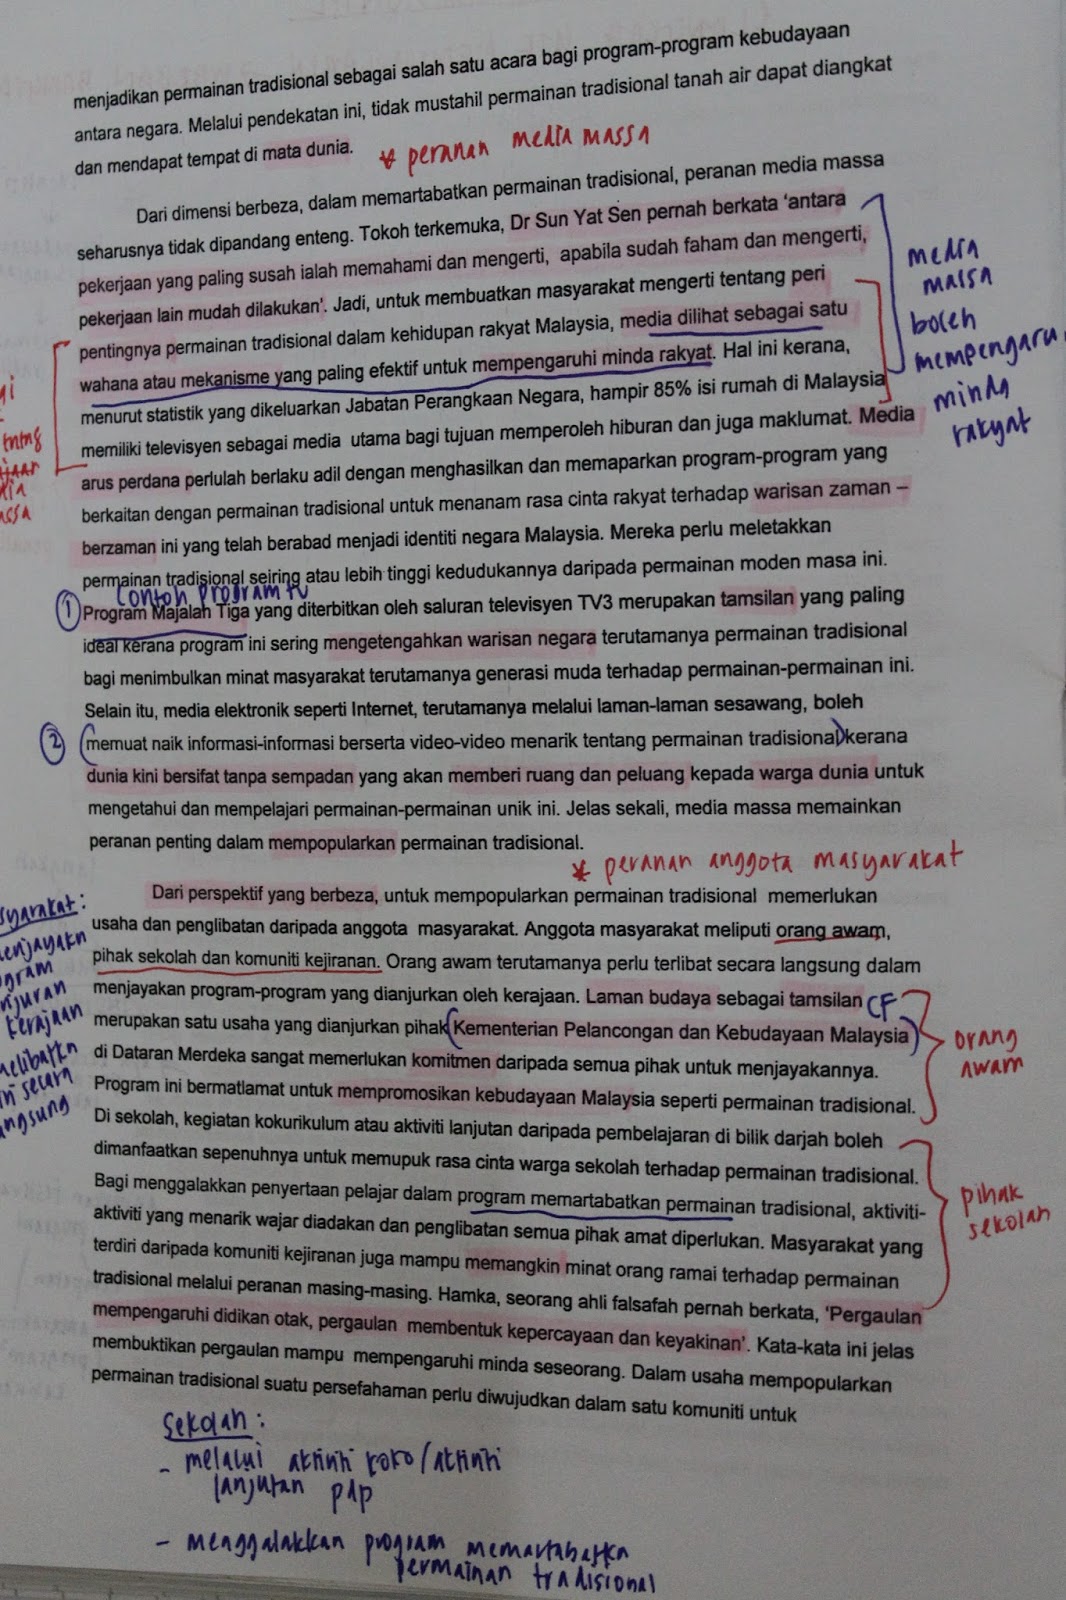 menjadikan permainan tradisional sebagai salah satu acara bagi program-program kebudayaan
antara negara. Melalui pendekatan ini, tidak mustahil permainan tradisional tanah air dapat diangkat
dan mendapat tempat di mata dunia.
* peranan media massa
Dari dimensi berbeza, dalam memartabatkan permainan tradisional, peranan media massa
seharusnya tidak dipandang enteng. Tokoh terkemuka, Dr Sun Yat Sen pernah berkata ‘antara
pekerjaan yang paling susah ialah memahami dan mengerti, apabila sudah faham dan mengerti,
pekerjaan lain mudah dilakukan’. Jadi, untuk membuatkan masyarakat mengerti tentang peri
pentingnya permainan tradisional dalam kehidupan rakyat Malaysia, media dilihat sebagai satu
wahana atau mekanisme yang paling efektif untuk mempengaruhi minda rakyat. Hal ini kerana,
menurut statistik yang dikeluarkan Jabatan Perangkaan Negara, hampir 85% isi rumah di Malaysia
memiliki televisyen sebagai media utama bagi tujuan memperoleh hiburan dan juga maklumat. Media
arus perdana perlulah berlaku adil dengan menghasilkan dan memaparkan program-program yang
berkaitan dengan permainan tradisional untuk menanam rasa cinta rakyat terhadap warisan zaman –
berzaman ini yang telah berabad menjadi identiti negara Malaysia. Mereka perlu meletakkan
permainan tradisional seiring atau lebih tinggi kedudukannya daripada permainan moden masa ini.
media
massa
boleh
mempengaru
minda
rakyat
contoh program tv
① Program Majalah Tiga yang diterbitkan oleh saluran televisyen TV3 merupakan tamsilan yang paling
ideal kerana program ini sering mengetengahkan warisan negara terutamanya permainan tradisional
bagi menimbulkan minat masyarakat terutamanya generasi muda terhadap permainan-permainan ini.
Selain itu, media elektronik seperti Internet, terutamanya melalui laman-laman sesawang, boleh
② (memuat naik informasi-informasi berserta video-video menarik tentang permainan tradisional) kerana
dunia kini bersifat tanpa sempadan yang akan memberi ruang dan peluang kepada warga dunia untuk
mengetahui dan mempelajari permainan-permainan unik ini. Jelas sekali, media massa memainkan
peranan penting dalam mempopularkan permainan tradisional.
* peranan anggota masyarakat
Dari perspektif yang berbeza, untuk mempopularkan permainan tradisional memerlukan
usaha dan penglibatan daripada anggota masyarakat. Anggota masyarakat meliputi orang awam,
pihak sekolah dan komuniti kejiranan. Orang awam terutamanya perlu terlibat secara langsung dalam
menjayakan program-program yang dianjurkan oleh kerajaan. Laman budaya sebagai tamsilan CF
merupakan satu usaha yang dianjurkan pihak (Kementerian Pelancongan dan Kebudayaan Malaysia)
di Dataran Merdeka sangat memerlukan komitmen daripada semua pihak untuk menjayakannya.
Program ini bermatlamat untuk mempromosikan kebudayaan Malaysia seperti permainan tradisional.
orang
awam
Di sekolah, kegiatan kokurikulum atau aktiviti lanjutan daripada pembelajaran di bilik darjah boleh
dimanfaatkan sepenuhnya untuk memupuk rasa cinta warga sekolah terhadap permainan tradisional.
Bagi menggalakkan penyertaan pelajar dalam program memartabatkan permainan tradisional, aktiviti-
aktiviti yang menarik wajar diadakan dan penglibatan semua pihak amat diperlukan. Masyarakat yang
terdiri daripada komuniti kejiranan juga mampu memangkin minat orang ramai terhadap permainan
tradisional melalui peranan masing-masing. Hamka, seorang ahli falsafah pernah berkata, ‘Pergaulan
mempengaruhi didikan otak, pergaulan membentuk kepercayaan dan keyakinan’. Kata-kata ini jelas
membuktikan pergaulan mampu mempengaruhi minda seseorang. Dalam usaha mempopularkan
permainan tradisional suatu persefahaman perlu diwujudkan dalam satu komuniti untuk
pihak
sekolah
sekolah :
- melalui aktiviti koko/aktiviti
lanjutan pdp
- menggalakkan program memartabatkn
permainan tradisional